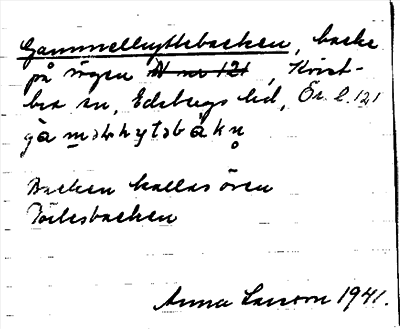 Gammelhyttebacken, backe
på vägen N nr 121, Kvist-
bro sn, Edsbergs hd, Ör. l. 121
gàməlhytəbákn̥
Backen kallas även
backen
Anna Larsson 1941.